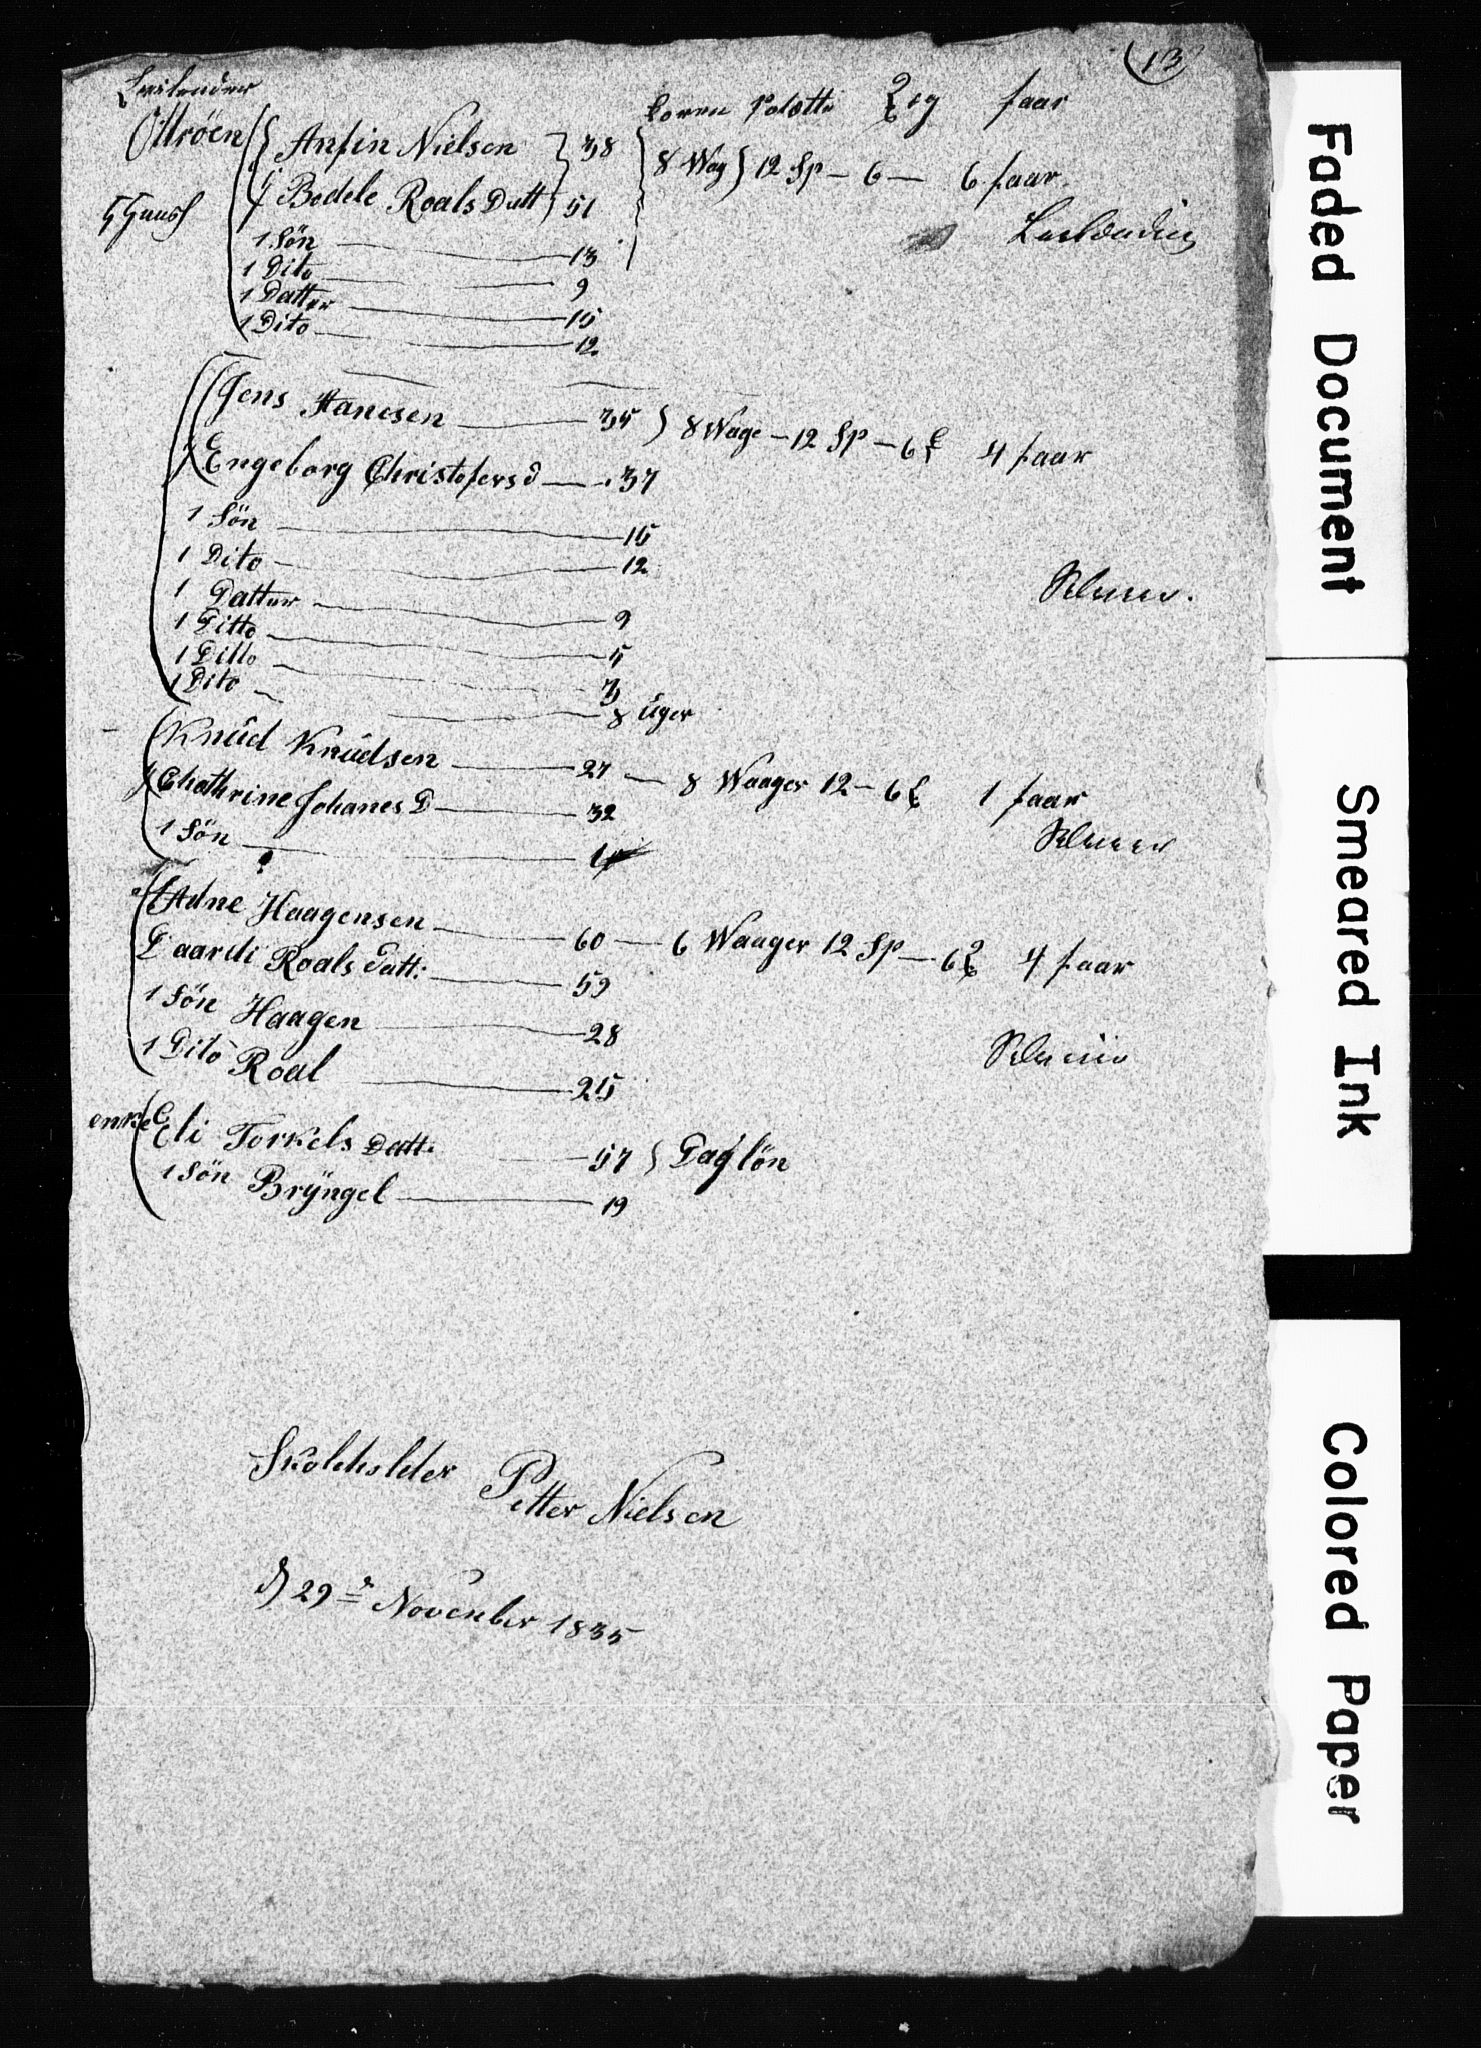 13
Leilender
koren Potette Qeg faar
Ottröen Anfin Nielsen 38 8 Wog 12 Sp – 6 – 6 faar
Bodele Roals Datt 51
1 Sön 13
1 Dito 9
1 Datter 15
1 Dito 12
Jens Hansen 35 8 Wage – 12 Sp – 6 4 faar
Engeborg Christofers d 37
1 Sön 15
1 Dito 12
1 Datter 9
1 Ditto 5
1 Ditto 3
1 Dito 8 Uger
Knúd Knúdsen 27 – 8 Waager 12 – 6 1 faar
Chathrine Johanes D 32
1 Sön
Adne Haagensen 60 – 6 Waager 12 Sp – 6 4 faar
Roals Datt: 59
1 Sön Haagen 28
1 Dito Roal 25
enke Eli Torkels Datt: 57 Daglön
1 Sön Brÿngel 19
Skoleholder Petter Nielsen
d 29de November 1835
Faded Document
Smeared Ink
Colored Paper